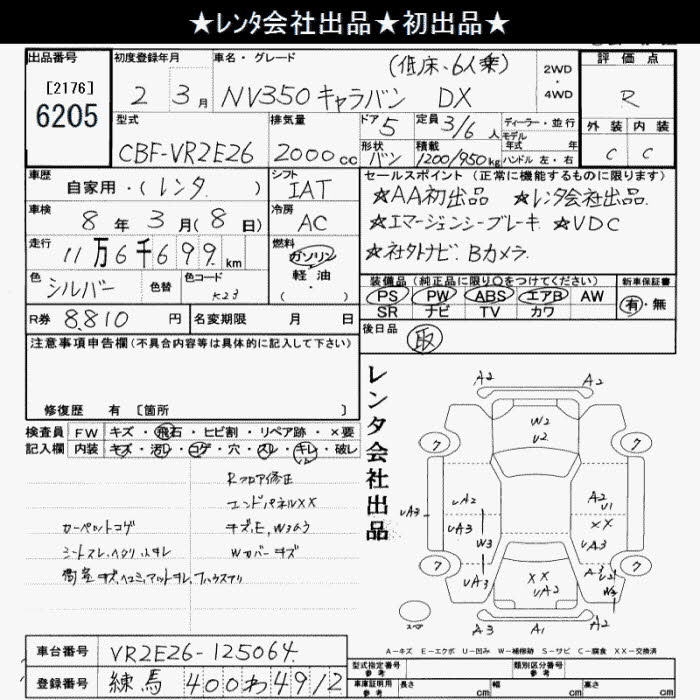 ★レンタ会社出品★初出品★
出品番号
[2176]
6205
初度登録年月
2年 3月
車名・グレード
(低床、6人乗)
NV350キャラバン DX
2WD
4WD
評価点
R
外装 内装
C C
型式
CBF-VR2E26
排気量
2000cc
ドア 5
形状 バン
定員 3/6人
積載 1200/950kg
ディーラー・並行
モデル
年式 年
ハンドル 左・右
車歴
自家用・(レンタ )
シフト
IAT
車検
8年3月(8日)
冷房
AC
走行
11万6千699km
燃料
ガソリン
軽油
・( )
色
シルバー
色替
色コード
K23
セールスポイント(正常に機能するものに限ります)
☆AA初出品 ☆レンタ会社出品
☆エマージェンシーブレーキ ☆VDC
☆社外ナビ、Bカメラ
装備品(純正品に限り○をつけてください)
PS PW ABS エアB AW
SR ナビ TV カワ
新車保証書
有・無
R券 8,810円
名変期限 月 日
後日品
取
注意事項申告欄(不具合内容等は具体的に記入して下さい)
修復歴 有 [箇所 ]
検査員 FW キズ・飛石・ヒビ割・リペア跡・×要
記入欄 内装 キズ・汚レ・コゲ・穴・スレ・キレ・破レ
Rフロア修正
エンドパネルXX
カーペットコゲ
キズ、E、W3あり
シートスレ、ヘタリ、ヨゴレ
Wカバーキズ
レンタ会社出品
A2 A2
W2
U2
7 7
UA3
UA2
A2
U1
UA3
W3
XX
UA3
UA3
XX
UA2
7 7
スペア
A3 A1 UA2
A-キズ E-エクボ U-凹み W-補修跡 S-サビ C-腐食 XX-交換済
車台番号 VR2E26-125064
登録番号 練馬 400わ4912
型式指定番号
参考
類別区分番号
参考
車庫証明用
参考
長さ cm
幅 cm
高さ cm